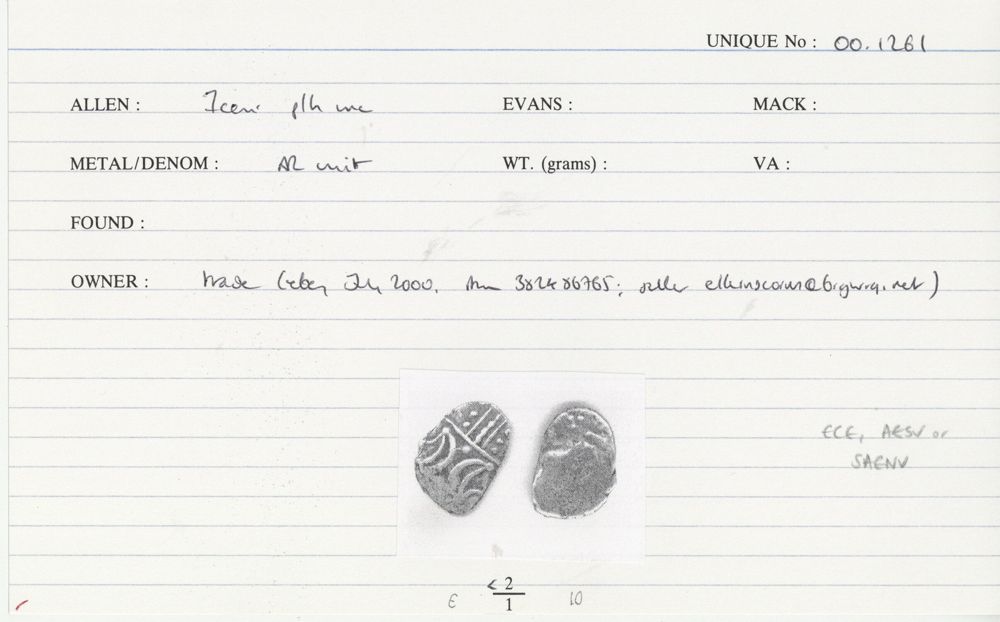 UNIQUE No : 00.1261
ALLEN : Iceni p/h unc EVANS : MACK :
METAL/DENOM : AR unit WT. (grams) : VA :
FOUND :
OWNER : trade (ebay July 2000, item 382486765; seller
ECE, AESV or
SAENV
< 2
E 1 10